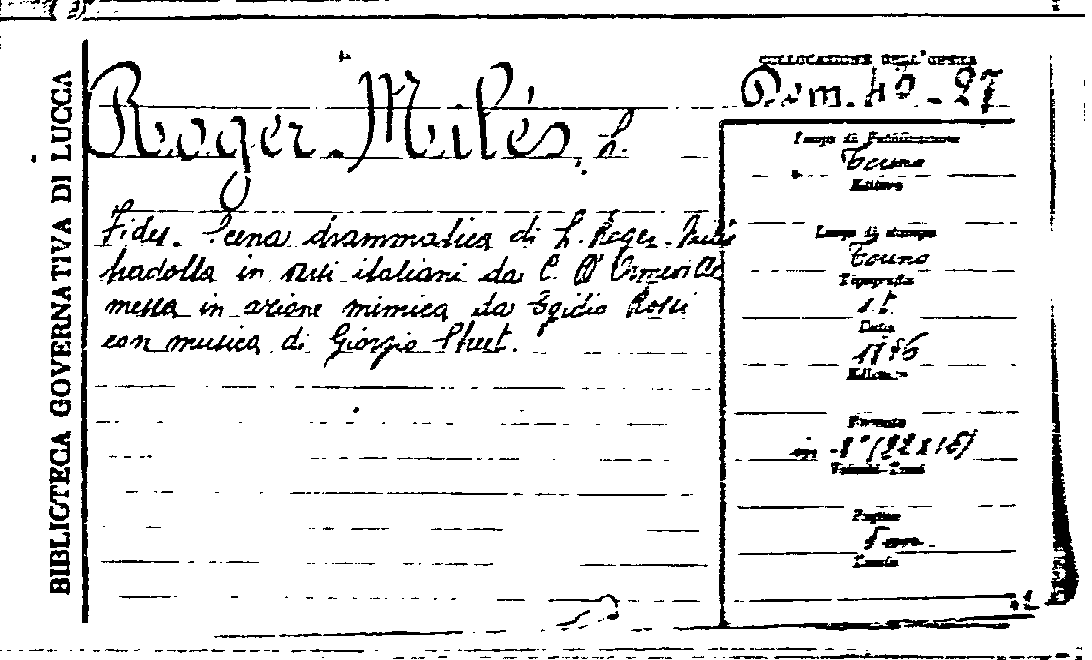 BIBLIOTECA GOVERNATIVA DI LUCCA
Roger-Milès, L.
Fides. Scena drammatica di L. Roger-Milès
tradotta in versi italiani da C. D'Ormeville
messa in azione mimica da Egidio Rossi
con musica di Giorgio Street.
COLLOCAZIONE DELL'OPERA
Dom. 40-27
Luogo di Pubblicazione
Torino
Editore
Luogo di stampa
Torino
Tipografia
s.t.
Data
Edizione
Formato
in -8°
Volumi-Tomi
Pagine
Tavole